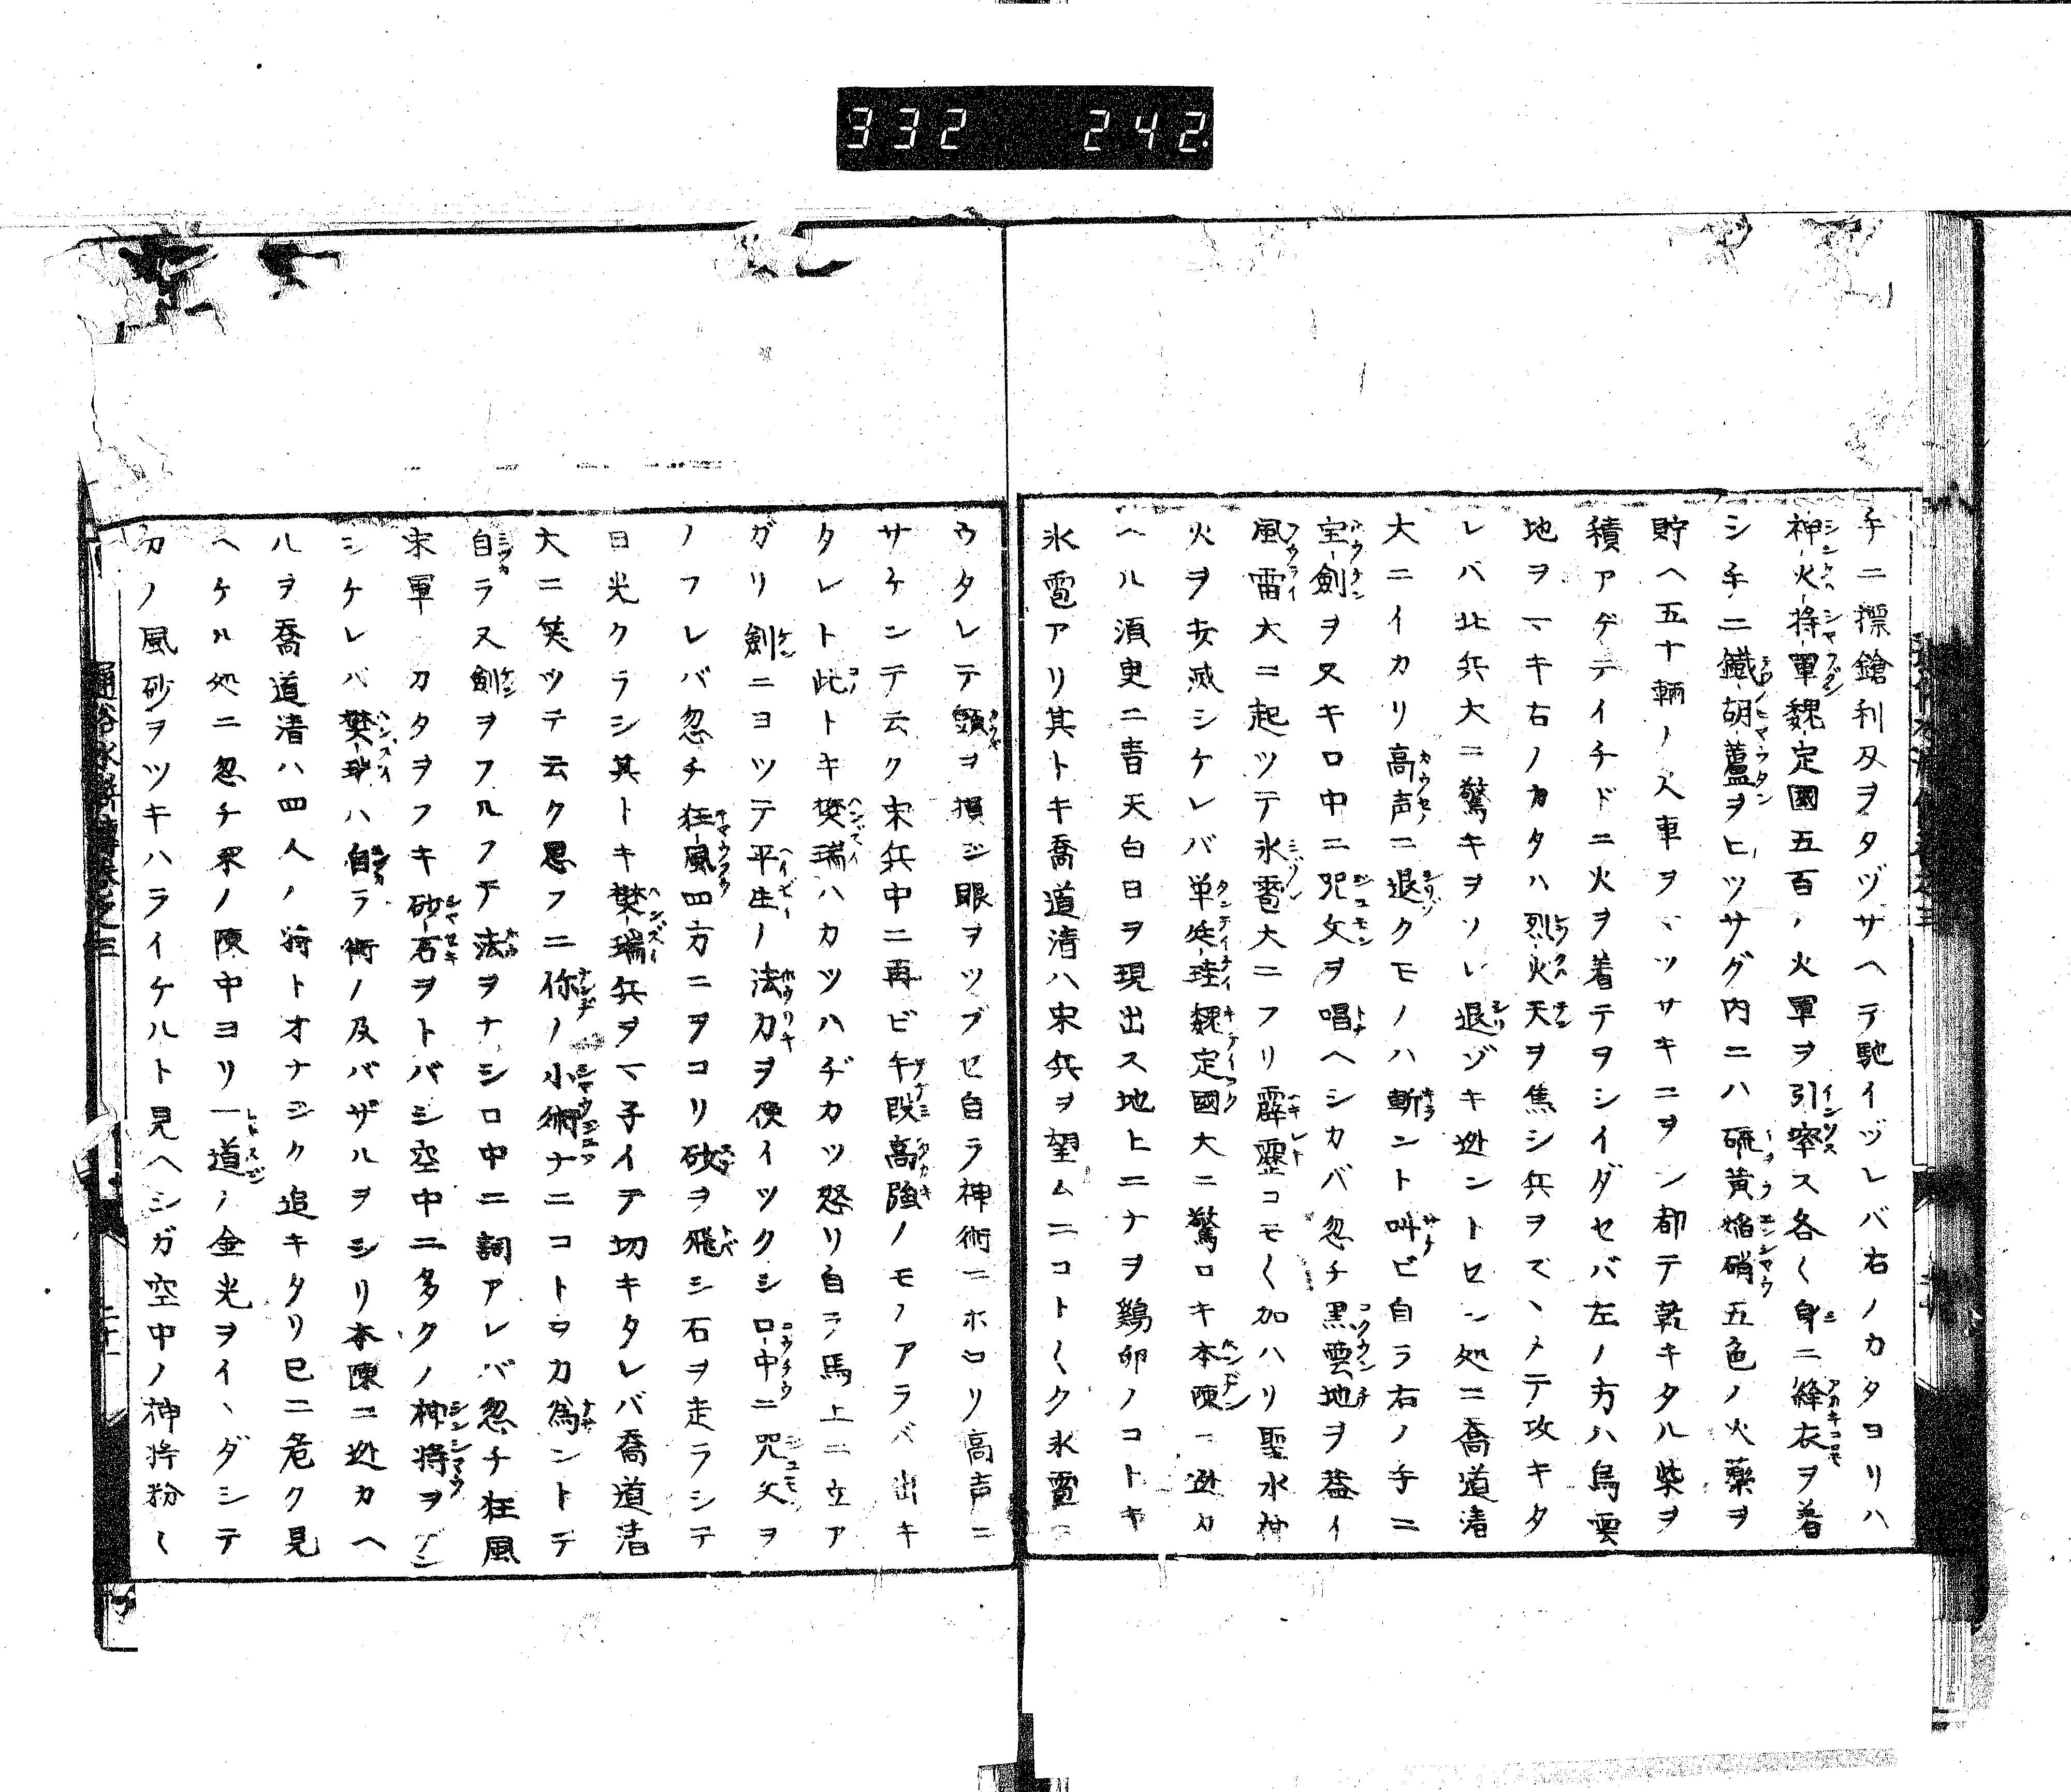 332 242
手ニ摽鎗利刄ヲタヅサヘテ馳イヅレバ右ノカタヨリハ
神火将軍魏定國五百ノ火軍ヲ引率ス各〱身ニ絳衣ヲ着
シ手ニ鐵胡蘆ヲヒツサグ内ニハ硫黄焔硝五色ノ火藥ヲ
貯ヘ五十輌ノ火車ヲヽツサキニヲシ都テ乾キタル柴ヲ
積アゲテイチドニ火ヲ着テヲシイダセバ左ノ方ハ烏雲
地ヲマキ右ノカタハ烈火天ヲ焦シ兵ヲスヽメテ攻キタ
レバ北兵大ニ驚キヲソレ退ゾキ迯ントセシ処ニ喬道清
大ニイカリ高声ニ退クモノハ斬ント叫ビ自ラ右ノ手ニ
宝劍ヲヌキ口中ニ咒文ヲ唱ヘシカバ忽チ黒雲地ヲ蓋イ
風雷大ニ起ツテ氷雹大ニフリ霹靂コモ〱加ハリ聖水神
火ヲ攻滅シケレバ単廷珪魏定國大ニ驚ロキ本陳ニ迯カ
ヘル須臾ニ青天白日ヲ現出ス地上ニナヲ鷄卵ノコトキ
氷雹アリ其トキ喬道清ハ宋兵ヲ望ムニコト〱ク氷雹ニ
ウタレテ頭ヲ損ジ眼ヲツブセ自ラ神術ニホコリ高声ニ
サケンテ云ク宋兵中ニ再ビ手段高強ノモノアラバ出キ
タレト此トキ樊瑞ハカツハヂカツ怒リ自ラ馬上ニ立ア
ガリ劍ニヨツテ平生ノ法力ヲ使イツクシ口中ニ咒文ヲ
ノフレバ忽チ狂風四方ニヲコリ砂ヲ飛シ石ヲ走ラシテ
日光クラシ其トキ樊瑞兵ヲマ子イテ切キタレバ喬道清
大ニ笑ツテ云ク思フニ你ノ小術ナニコトヲカ為ントテ
自ラ又劍ヲフルフテ法ヲナシ口中ニ詞アレバ忽チ狂風
宋軍ノカタヲフキ砂石ヲトバシ空中ニ多クノ神将ヲゲン
シケレバ樊瑞ハ自ラ術ノ及バザルヲシリ本陳ニ迯カヘ
ルヲ喬道清ハ四人ノ将トオナシク追キタリ已ニ危ク見
ヘケル処ニ忽チ宋ノ陳中ヨリ一道ノ金光ヲイヽダシテ
カノ風砂ヲツキハライケルト見ヘシガ空中ノ神将粉〱
通俗水滸傳巻之三
二十一